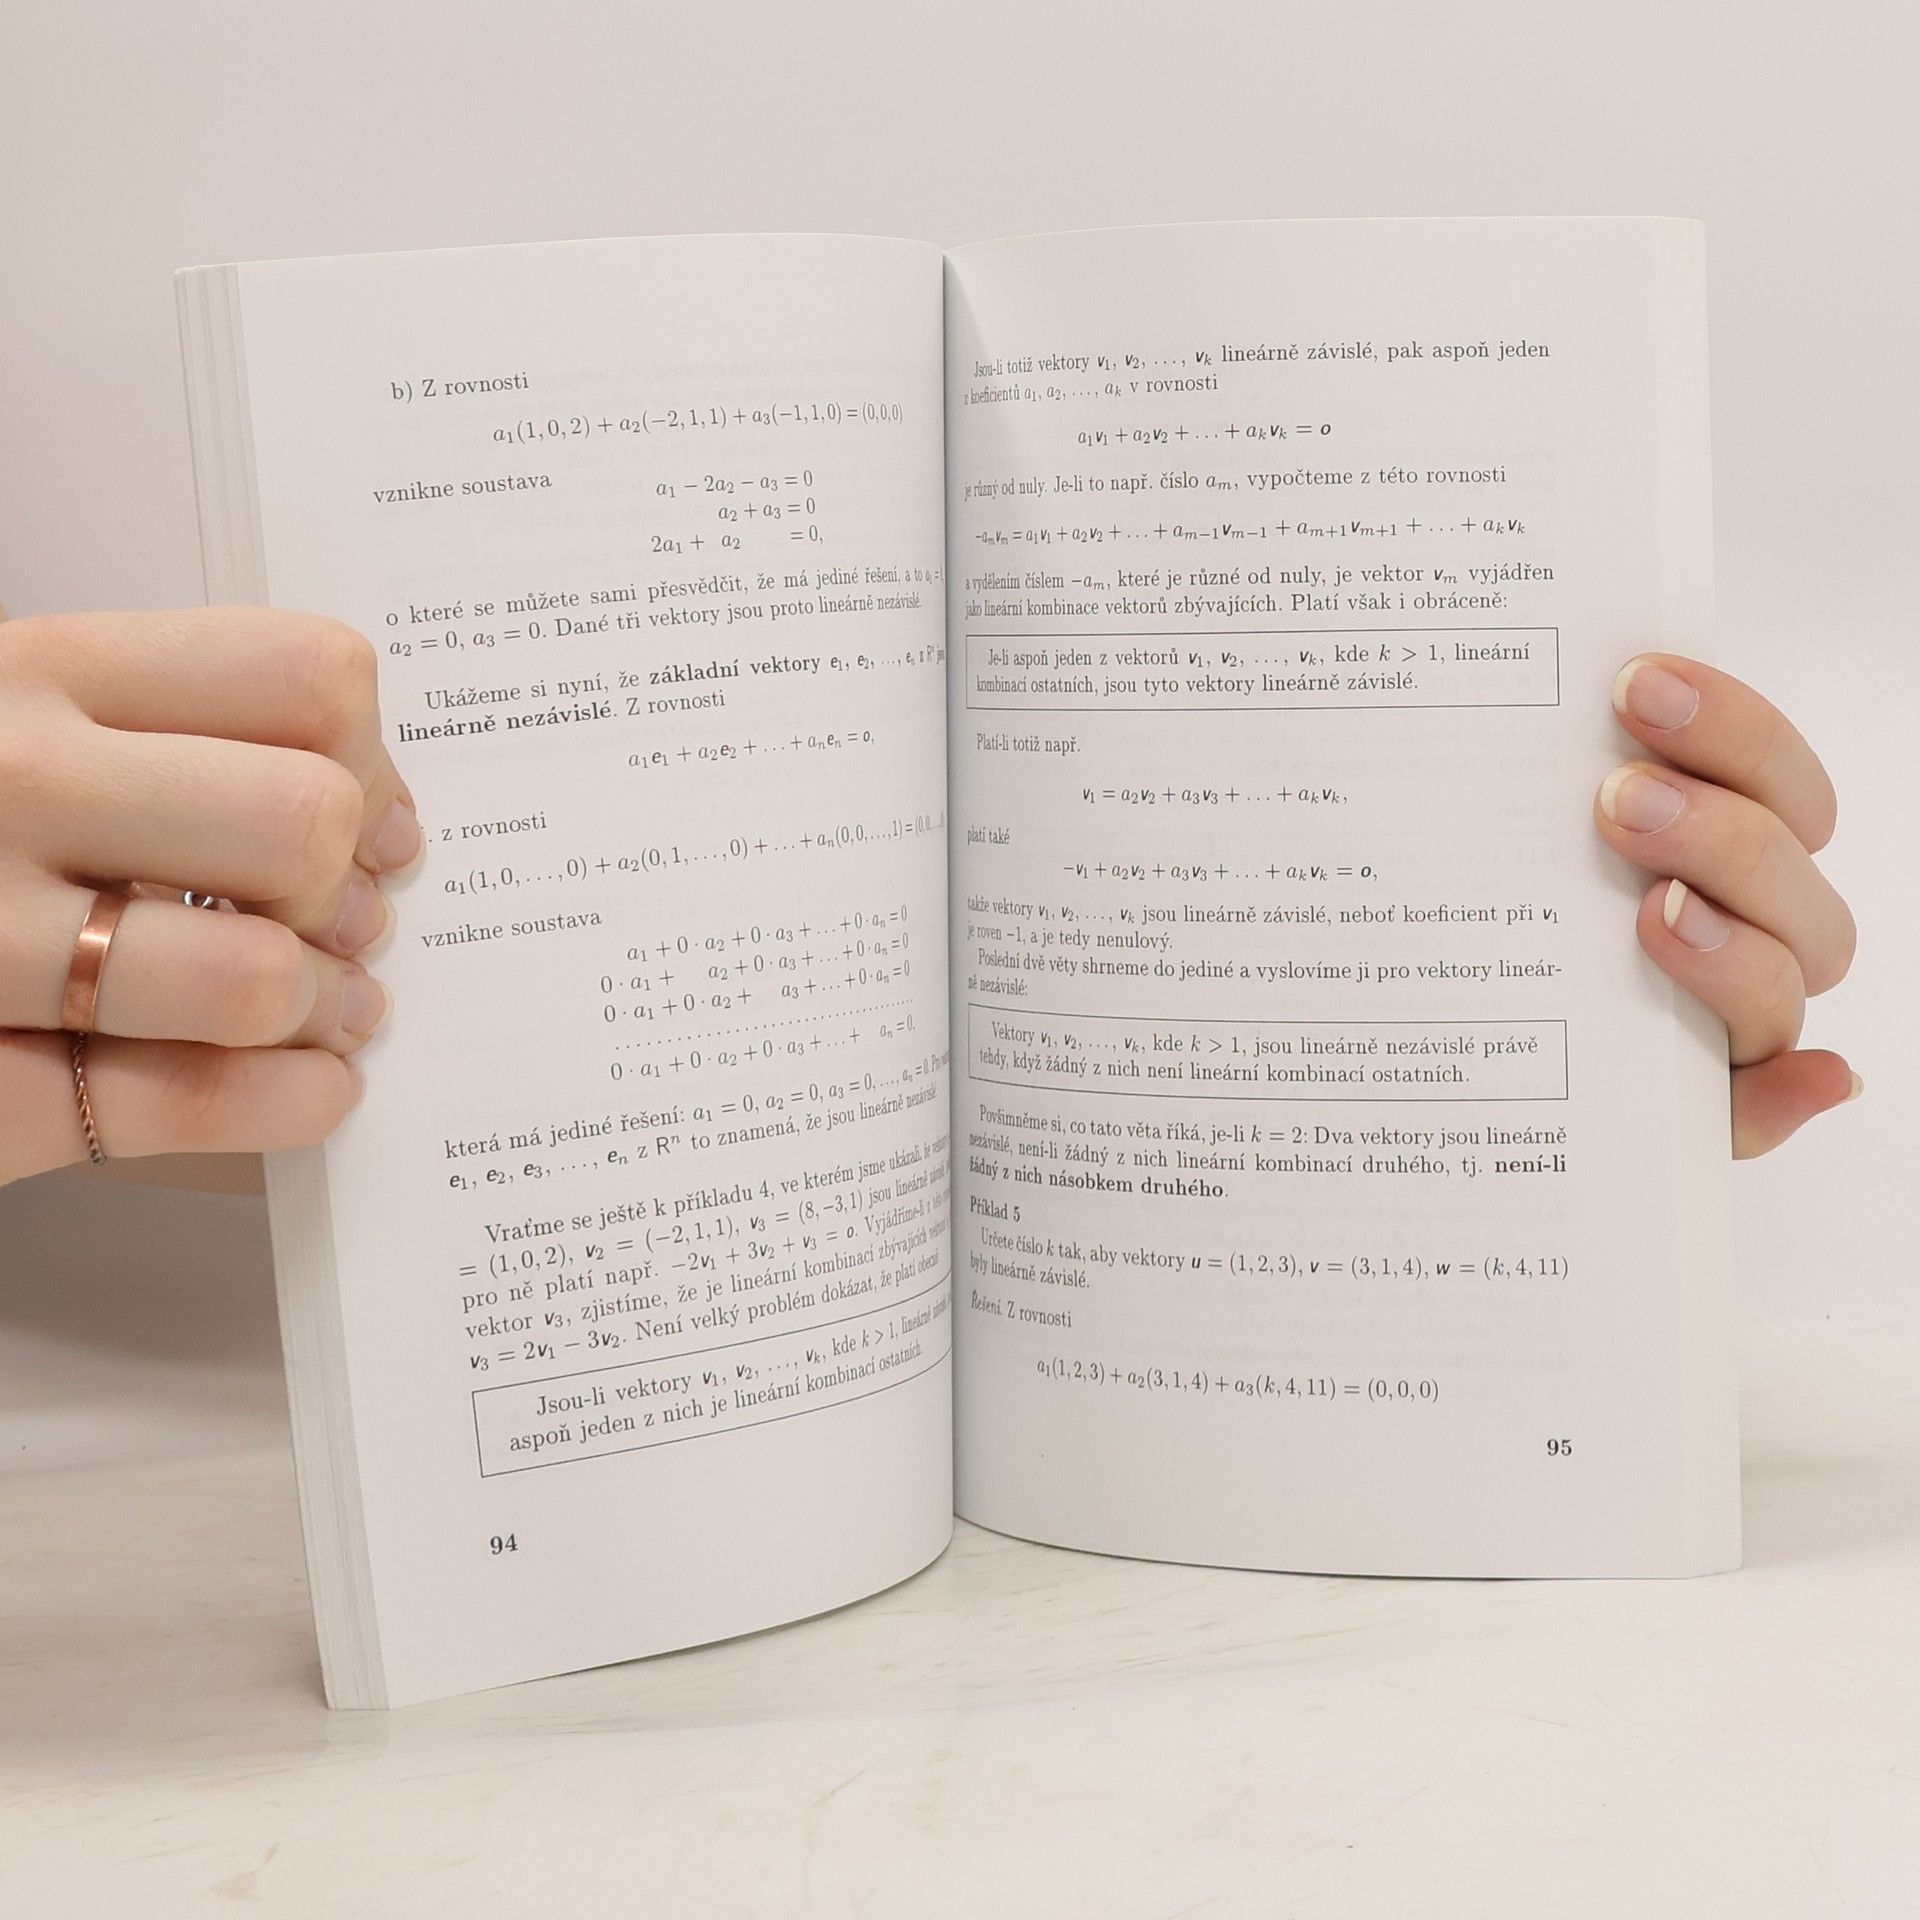 b) Z rovnosti
a₁(1, 0, 2) + a₂(−2, 1, 1) + a₃(−1, 1, 0) = (0, 0, 0)
vznikne soustava
a₁ − 2a₂ − a₃ = 0
a₂ + a₃ = 0
2a₁ + a₂ = 0,
o které se můžete sami přesvědčit, že má jediné řešení, a to a₁ =
a₂ = 0, a₃ = 0. Dané tři vektory jsou proto lineárně nezávislé.
Ukážeme si nyní, že základní vektory e₁, e₂, ..., eₙ z Rⁿ
lineárně nezávislé. Z rovnosti
a₁e₁ + a₂e₂ + ... + aₙeₙ = o,
z rovnosti
a₁(1, 0, ..., 0) + a₂(0, 1, ..., 0) + ... + aₙ(0, 0, ..., 1) = (0, 0,
vznikne soustava
a₁ + 0 · a₂ + 0 · a₃ + ... + 0 · aₙ = 0
0 · a₁ + a₂ + 0 · a₃ + ... + 0 · aₙ = 0
0 · a₁ + 0 · a₂ + a₃ + ... + 0 · aₙ = 0
........................................
0 · a₁ + 0 · a₂ + 0 · a₃ + ... + aₙ = 0,
která má jediné řešení: a₁ = 0, a₂ = 0, a₃ = 0, ..., aₙ = 0. Pro
e₁, e₂, e₃, ..., eₙ z Rⁿ to znamená, že jsou lineárně nezávislé.
Vraťme se ještě k příkladu 4, ve kterém jsme ukázali, že
= (1, 0, 2), v₂ = (−2, 1, 1), v₃ = (8, −3, 1) jsou lineárně
pro ně platí např. −2v₁ + 3v₂ + v₃ = o. Vyjádříme-li z této
vektor v₃, zjistíme, že je lineární kombinací zbývajících
v₃ = 2v₁ − 3v₂. Není velký problém dokázat, že platí obecně:
Jsou-li vektory v₁, v₂, ..., vₖ, kde k > 1, lineárně
aspoň jeden z nich je lineární kombinací ostatních.
94
Jsou-li totiž vektory v₁, v₂, ..., vₖ lineárně závislé, pak aspoň jeden
z koeficientů a₁, a₂, ..., aₖ v rovnosti
a₁v₁ + a₂v₂ + ... + aₖvₖ = o
je různý od nuly. Je-li to např. číslo aₘ, vypočteme z této rovnosti
−aₘvₘ = a₁v₁ + a₂v₂ + ... + aₘ₋₁vₘ₋₁ + aₘ₊₁vₘ₊₁ + ... + aₖvₖ
a vydělením číslem −aₘ, které je různé od nuly, je vektor vₘ vyjádřen
jako lineární kombinace vektorů zbývajících. Platí však i obráceně:
Je-li aspoň jeden z vektorů v₁, v₂, ..., vₖ, kde k > 1, lineární
kombinací ostatních, jsou tyto vektory lineárně závislé.
Platí-li totiž např.
v₁ = a₂v₂ + a₃v₃ + ... + aₖvₖ,
platí také
−v₁ + a₂v₂ + a₃v₃ + ... + aₖvₖ = o,
takže vektory v₁, v₂, ..., vₖ jsou lineárně závislé, neboť koeficient při v₁
je roven −1, a je tedy nenulový.
Poslední dvě věty shrneme do jediné a vyslovíme ji pro vektory lineár-
ně nezávislé:
Vektory v₁, v₂, ..., vₖ, kde k > 1, jsou lineárně nezávislé právě
tehdy, když žádný z nich není lineární kombinací ostatních.
Povšimněme si, co tato věta říká, je-li k = 2: Dva vektory jsou lineárně
nezávislé, není-li žádný z nich lineární kombinací druhého, tj. není-li
žádný z nich násobkem druhého.
Příklad 5
Určete číslo k tak, aby vektory u = (1, 2, 3), v = (3, 1, 4), w = (k, 4, 11)
byly lineárně závislé.
Řešení. Z rovnosti
a₁(1, 2, 3) + a₂(3, 1, 4) + a₃(k, 4, 11) = (0, 0, 0)
95